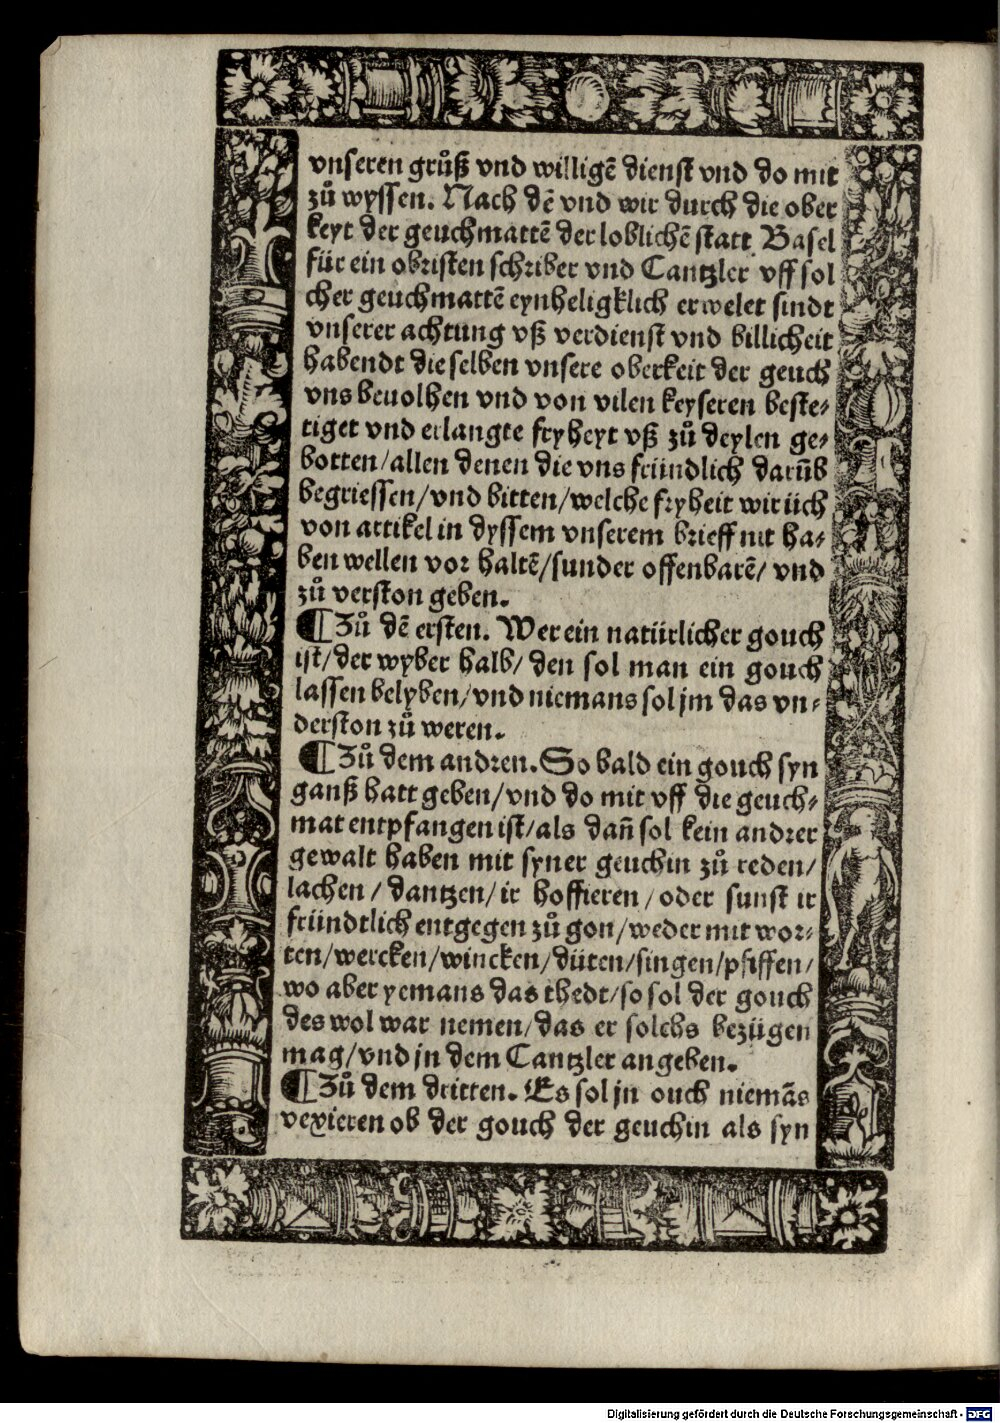 vnseren gruͦß vnd willigẽ dienst vnd do mit
zuͦ wyssen. Nach dẽ vnd wir durch die ober
keyt der geuchmattẽ der loblichẽ statt Basel
für ein obristen schriber vnd Cantzler vff sol
cher geuchmattẽ eynheligklich erwelet sindt
vnserer achtung vß verdienst vnd billicheit
habendt die selben vnsere oberkeit der geuch
vns beuolhen vnd von vilen keyseren beste⸗
tiget vnd erlangte fryheyt vß zuͦ deylen ge⸗
botten/allen denen die vns fründlich darũb
begriessen/vnd bitten/welche fryheit wir üch
von artikel in dyssem vnserem brieff nit ha⸗
ben wellen vor haltẽ/sunder offenbarẽ/ vnd
zuͦ verston geben.
¶Zuͦ dẽ ersten. Wer ein natürlicher gouch
ist/der wyber halb/ den sol man ein gouch
lassen belyben/vnd niemans sol jm das vn⸗
derston zuͦ weren.
¶Zuͦ dem andren. So bald ein gouch syn
ganß hatt geben/vnd do mit vff die geuch⸗
mat entpfangen ist/als dañ sol kein andrer
gewalt haben mit syner geuchin zuͦ reden/
lachen/ dantzen/ir hoffieren/oder sunst ir
fründtlich entgegen zuͦ gon/weder mit wor⸗
ten/wercken/wincken/düten/singen/pfiffen/
wo aber yemans das thedt/so sol der gouch
des wol war nemen/das er solchs bezügen
mag/vnd jn dem Cantzler angeben.
¶Zuͦ dem dritten. Es sol jn ouch niemãs
vexieren ob der gouch der geuchin als syn
Digitalisierung gefördert durch die Deutsche Forschungsgemeinschaft - DFG